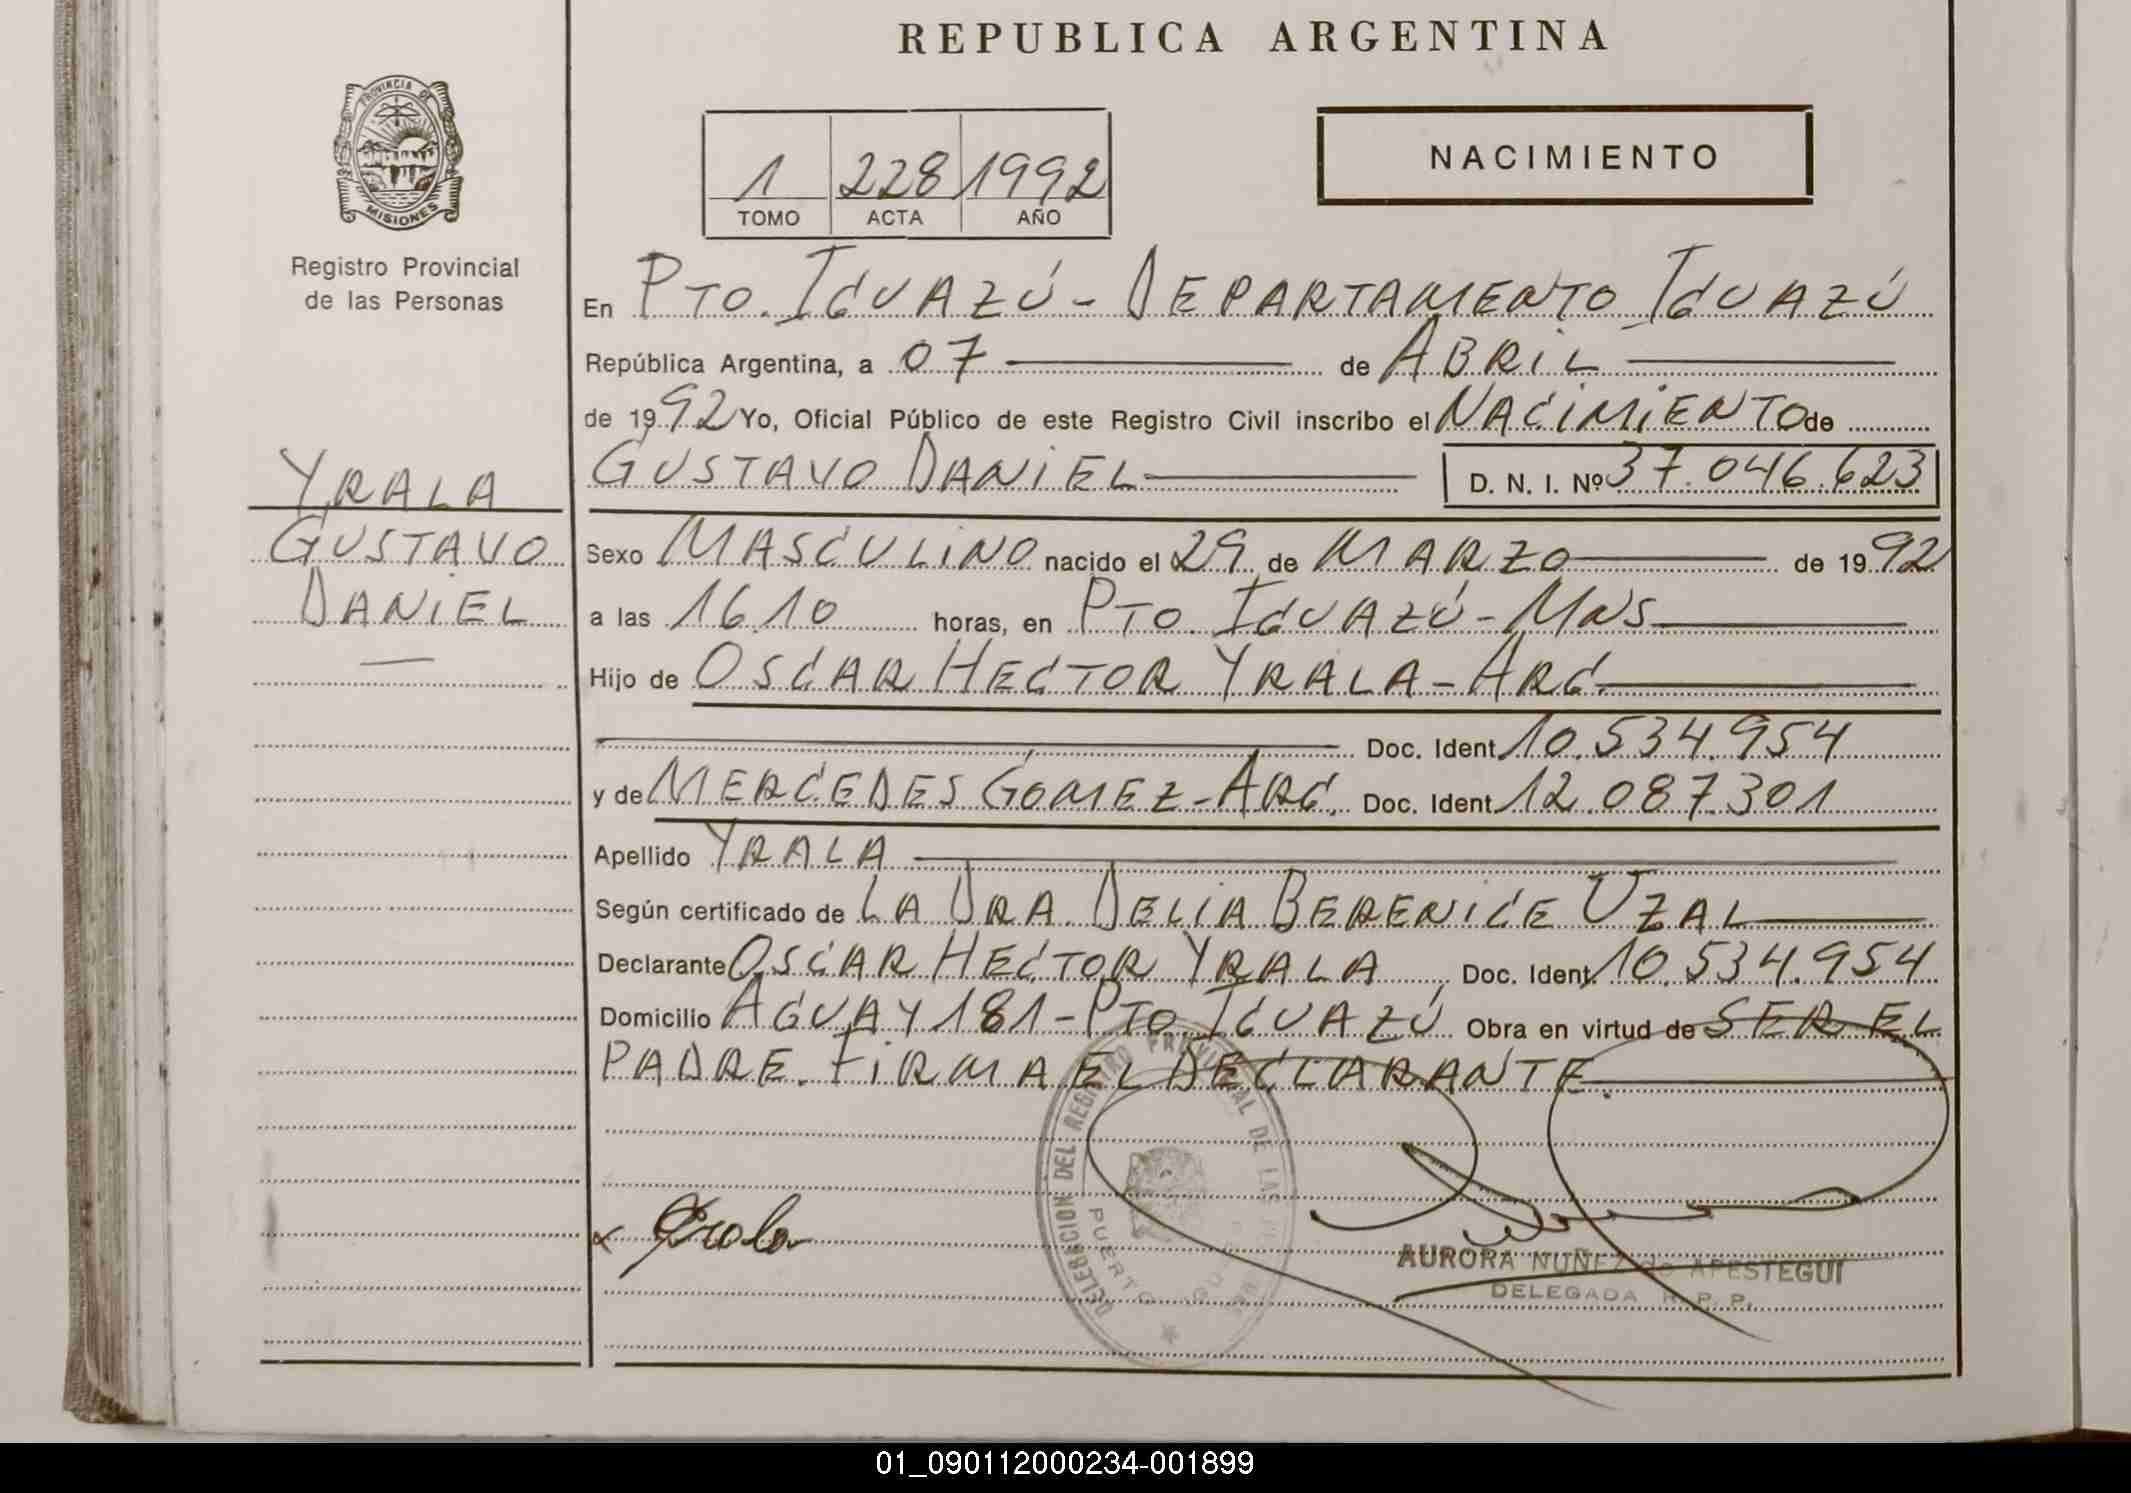 REPUBLICA ARGENTINA
PROVINCIA DE
MISIONES
Registro Provincial
de las Personas
NACIMIENTO
1 228 1992
TOMO ACTA AÑO
En PTO. IGUAZÚ - DEPARTAMENTO IGUAZÚ
República Argentina, a 07 de ABRIL
de 1992 Yo, Oficial Público de este Registro Civil inscribo el NACIMIENTO de
GUSTAVO DANIEL D. N. I. Nº 37.046.623
YRALA
GUSTAVO
DANIEL
Sexo MASCULINO nacido el 29 de MARZO de 1992
a las 16.10 horas, en PTO. IGUAZÚ - MNS
Hijo de OSCAR HECTOR YRALA - ARG.
Doc. Ident. 10.534.954
y de MERCEDES GÓMEZ - ARG. Doc. Ident. 12.087.301
Apellido YRALA
Según certificado de LA DRA. DELIA BERENICE UZAL
Declarante OSCAR HECTOR YRALA, Doc. Ident. 10.534.954
Domicilio AGUAY 181 - PTO. IGUAZÚ Obra en virtud de SER EL
PADRE. FIRMA EL DECLARANTE.
DELEGACION DEL REGISTRO PROVINCIAL DE LAS
PUERTO
x Yrala
AURORA NUÑEZ de APESTEGUI
DELEGADA R. P. P.
01_090112000234-001899